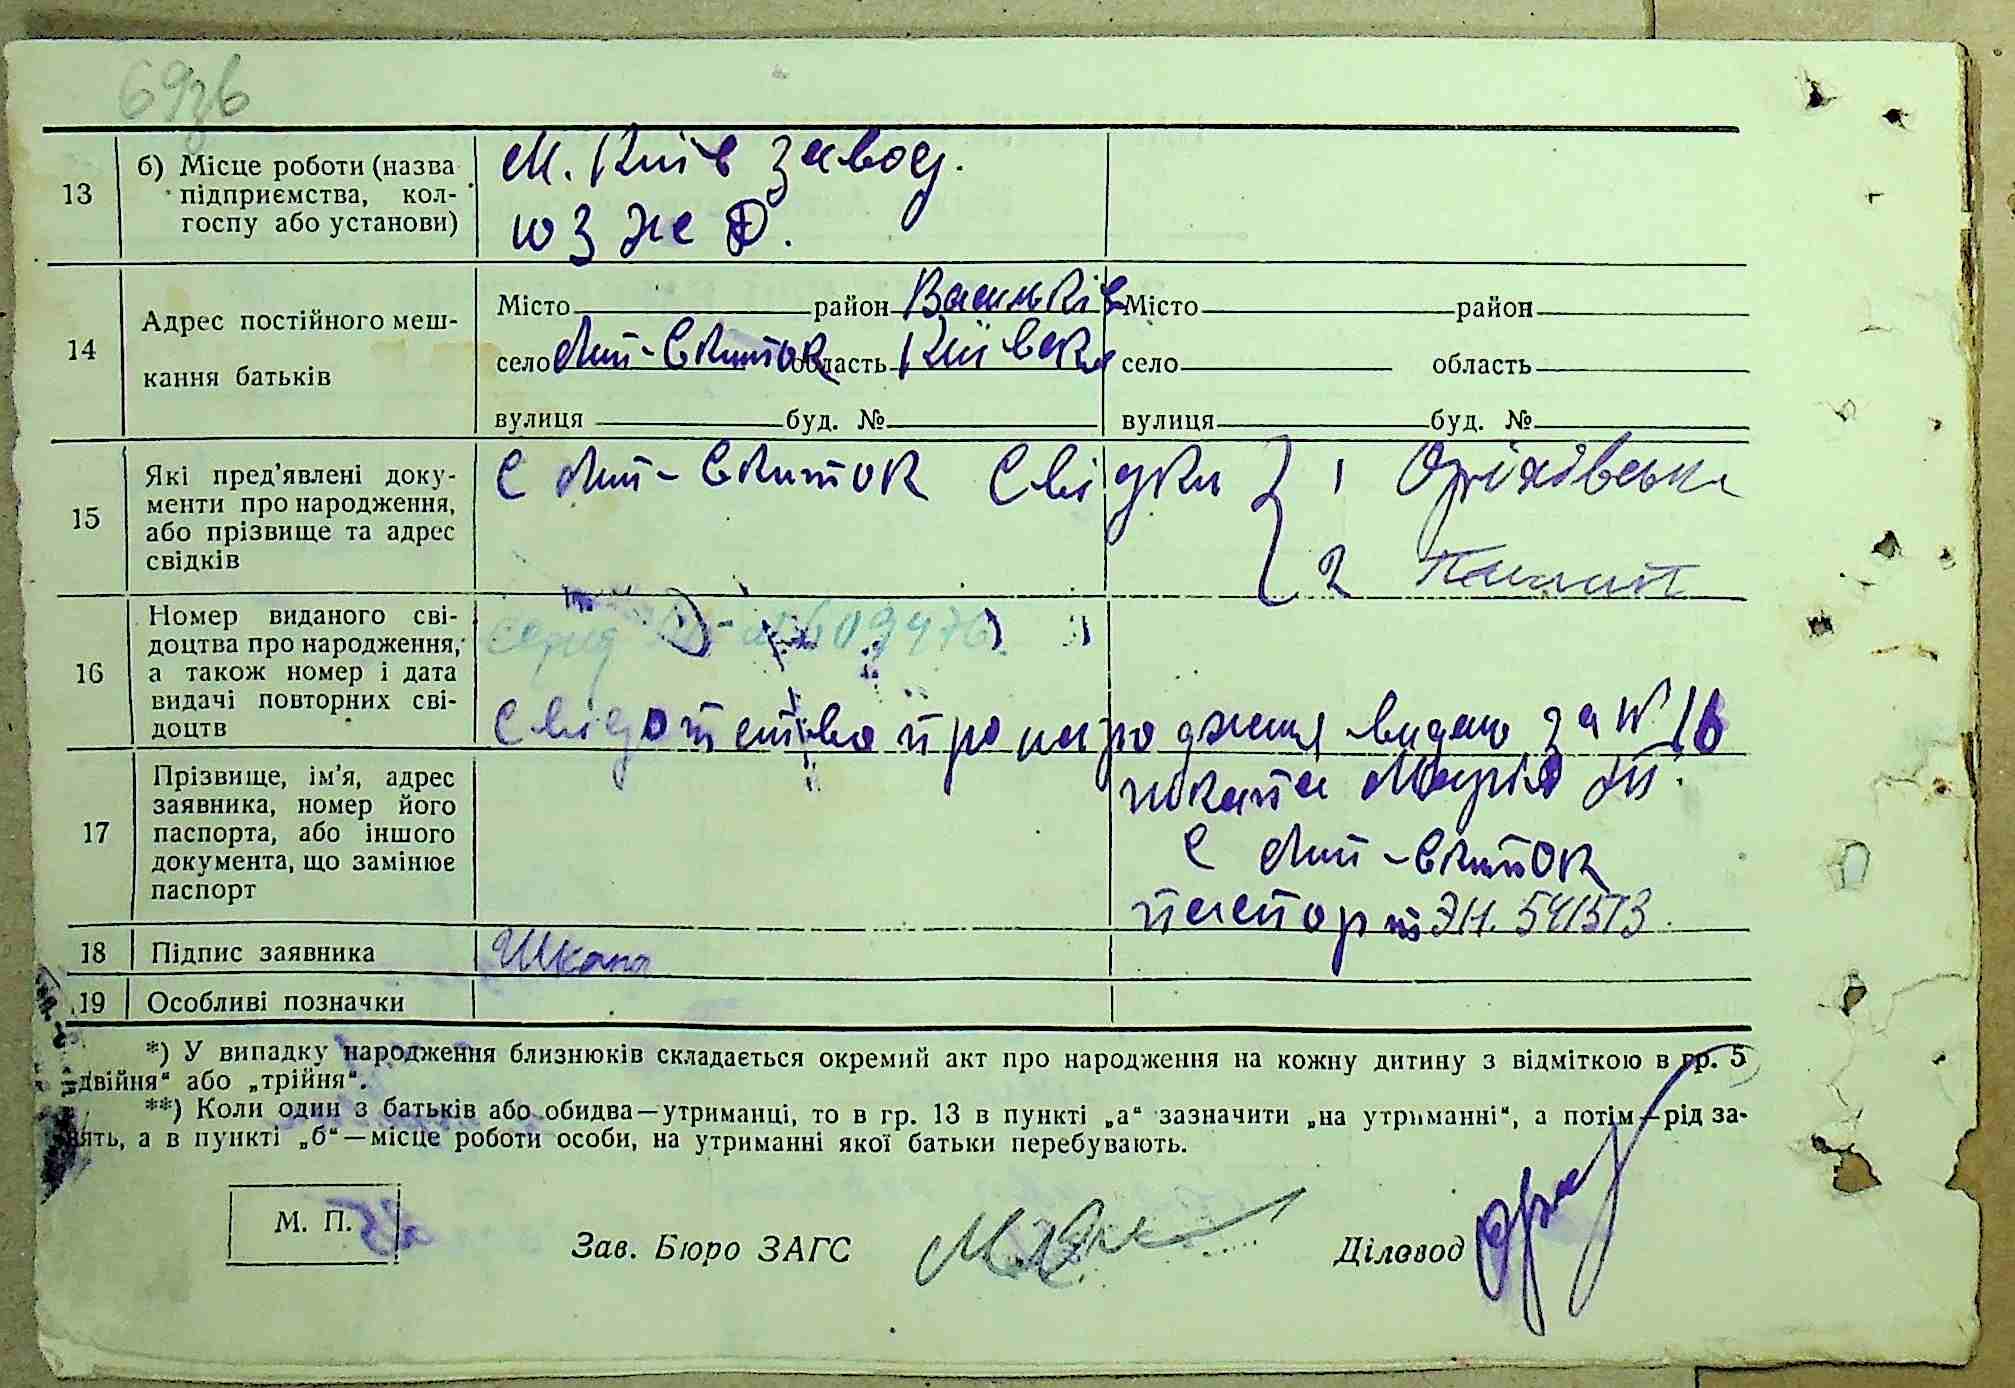 69зв
13
б) Місце роботи (назва підприємства, кол-
госпу або установи)
м. Київ завод.
ЮЗЖД.
14
Адрес постійного меш-
кання батьків
Місто район Васильків
село Мит-Виток область Київська
вулиця буд. №
Місто район
село область
вулиця буд. №
15
Які пред'явлені доку-
менти про народження,
або прізвище та адрес
свідків
С Мит-Виток Свідки 1 Оріхівська
2
16
Номер виданого сві-
доцтва про народження,
а також номер і дата
видачі повторних сві-
доцтв
Свідотство про народження видано за № 16
17
Прізвище, ім'я, адрес
заявника, номер його
паспорта, або іншого
документа, що замінює
паспорт
Марія
с Мит-Виток
паспорт ЭН. 541573
18
Підпис заявника
Шкапа
19
Особливі позначки
*) У випадку народження близнюків складається окремий акт про народження на кожну дитину з відміткою в гр. 5
„двійня“ або „трійня“.
**) Коли один з батьків або обидва—утриманці, то в гр. 13 в пункті „а“ зазначити „на утриманні“, а потім—рід за-
нять, а в пункті „б“—місце роботи особи, на утриманні якої батьки перебувають.
М. П.
Зав. Бюро ЗАГС
Діловод